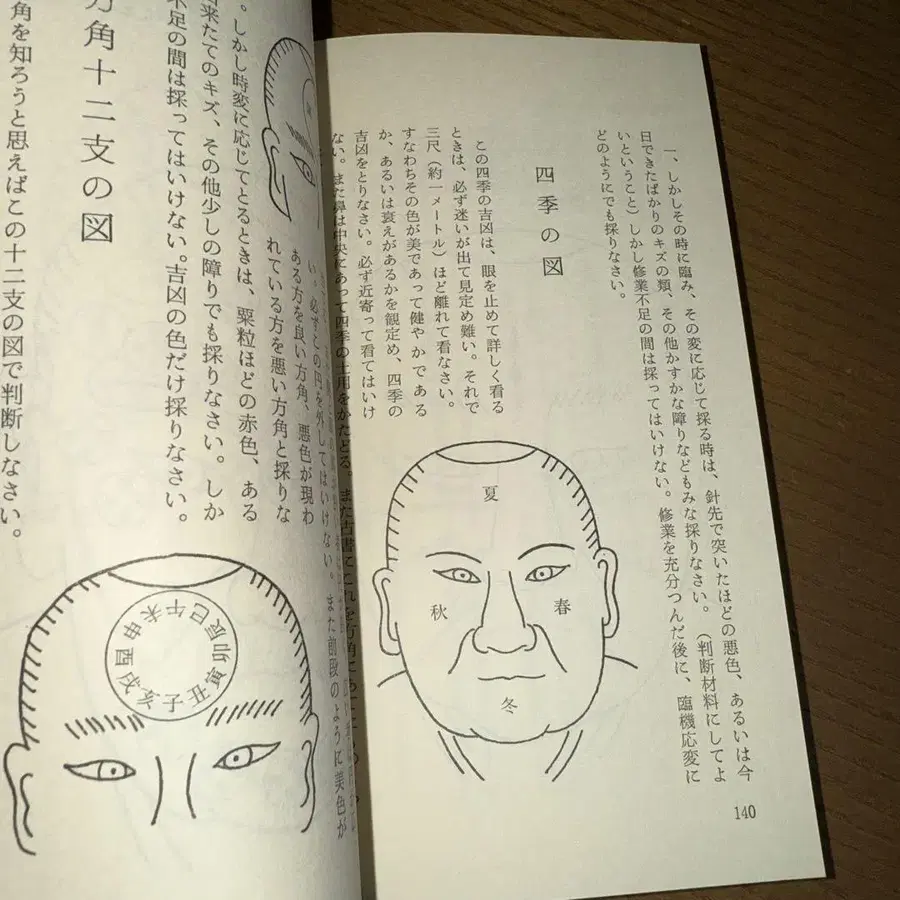 一、しかしその時に臨み、その変に応じて採る時は、針先で突いたほどの悪色、あるいは今
日できたばかりのキズの類、その他かすかな障りなどもみな採りなさい。（判断材料にしてよ
いということ）しかし修業不足の間は採ってはいけない。修業を充分つんだ後に、臨機応変に
どのようにでも採りなさい。
四季の図
この四季の吉凶は、眼を止めて詳しく看る
ときは、必ず迷いが出て見定め難い。それで
三尺（約一メートル）ほど離れて看なさい。
すなわちその色が美であって健やかである
か、あるいは衰えがあるかを観定め、四季の
吉凶をとりなさい。必ず近寄って看てはいけ
ない。また鼻は中央にあって四季の土用をかたどる。また古書にこれを方角にあ
夏
秋
春
冬
140
い。必ずこの円を外してはいけない。また前段のように美色が
ある方を良い方角、悪色が現わ
れている方を悪い方角と採りな
。しかし時変に応じてとるときは、粟粒ほどの赤色、ある
来たてのキズ、その他少しの障りでも採りなさい。しか
不足の間は採ってはいけない。吉凶の色だけ採りなさい。
方角十二支の図
角を知ろうと思えばこの十二支の図で判断しなさい。
子
丑
寅
卯
辰
巳
午
未
申
酉
戌
亥